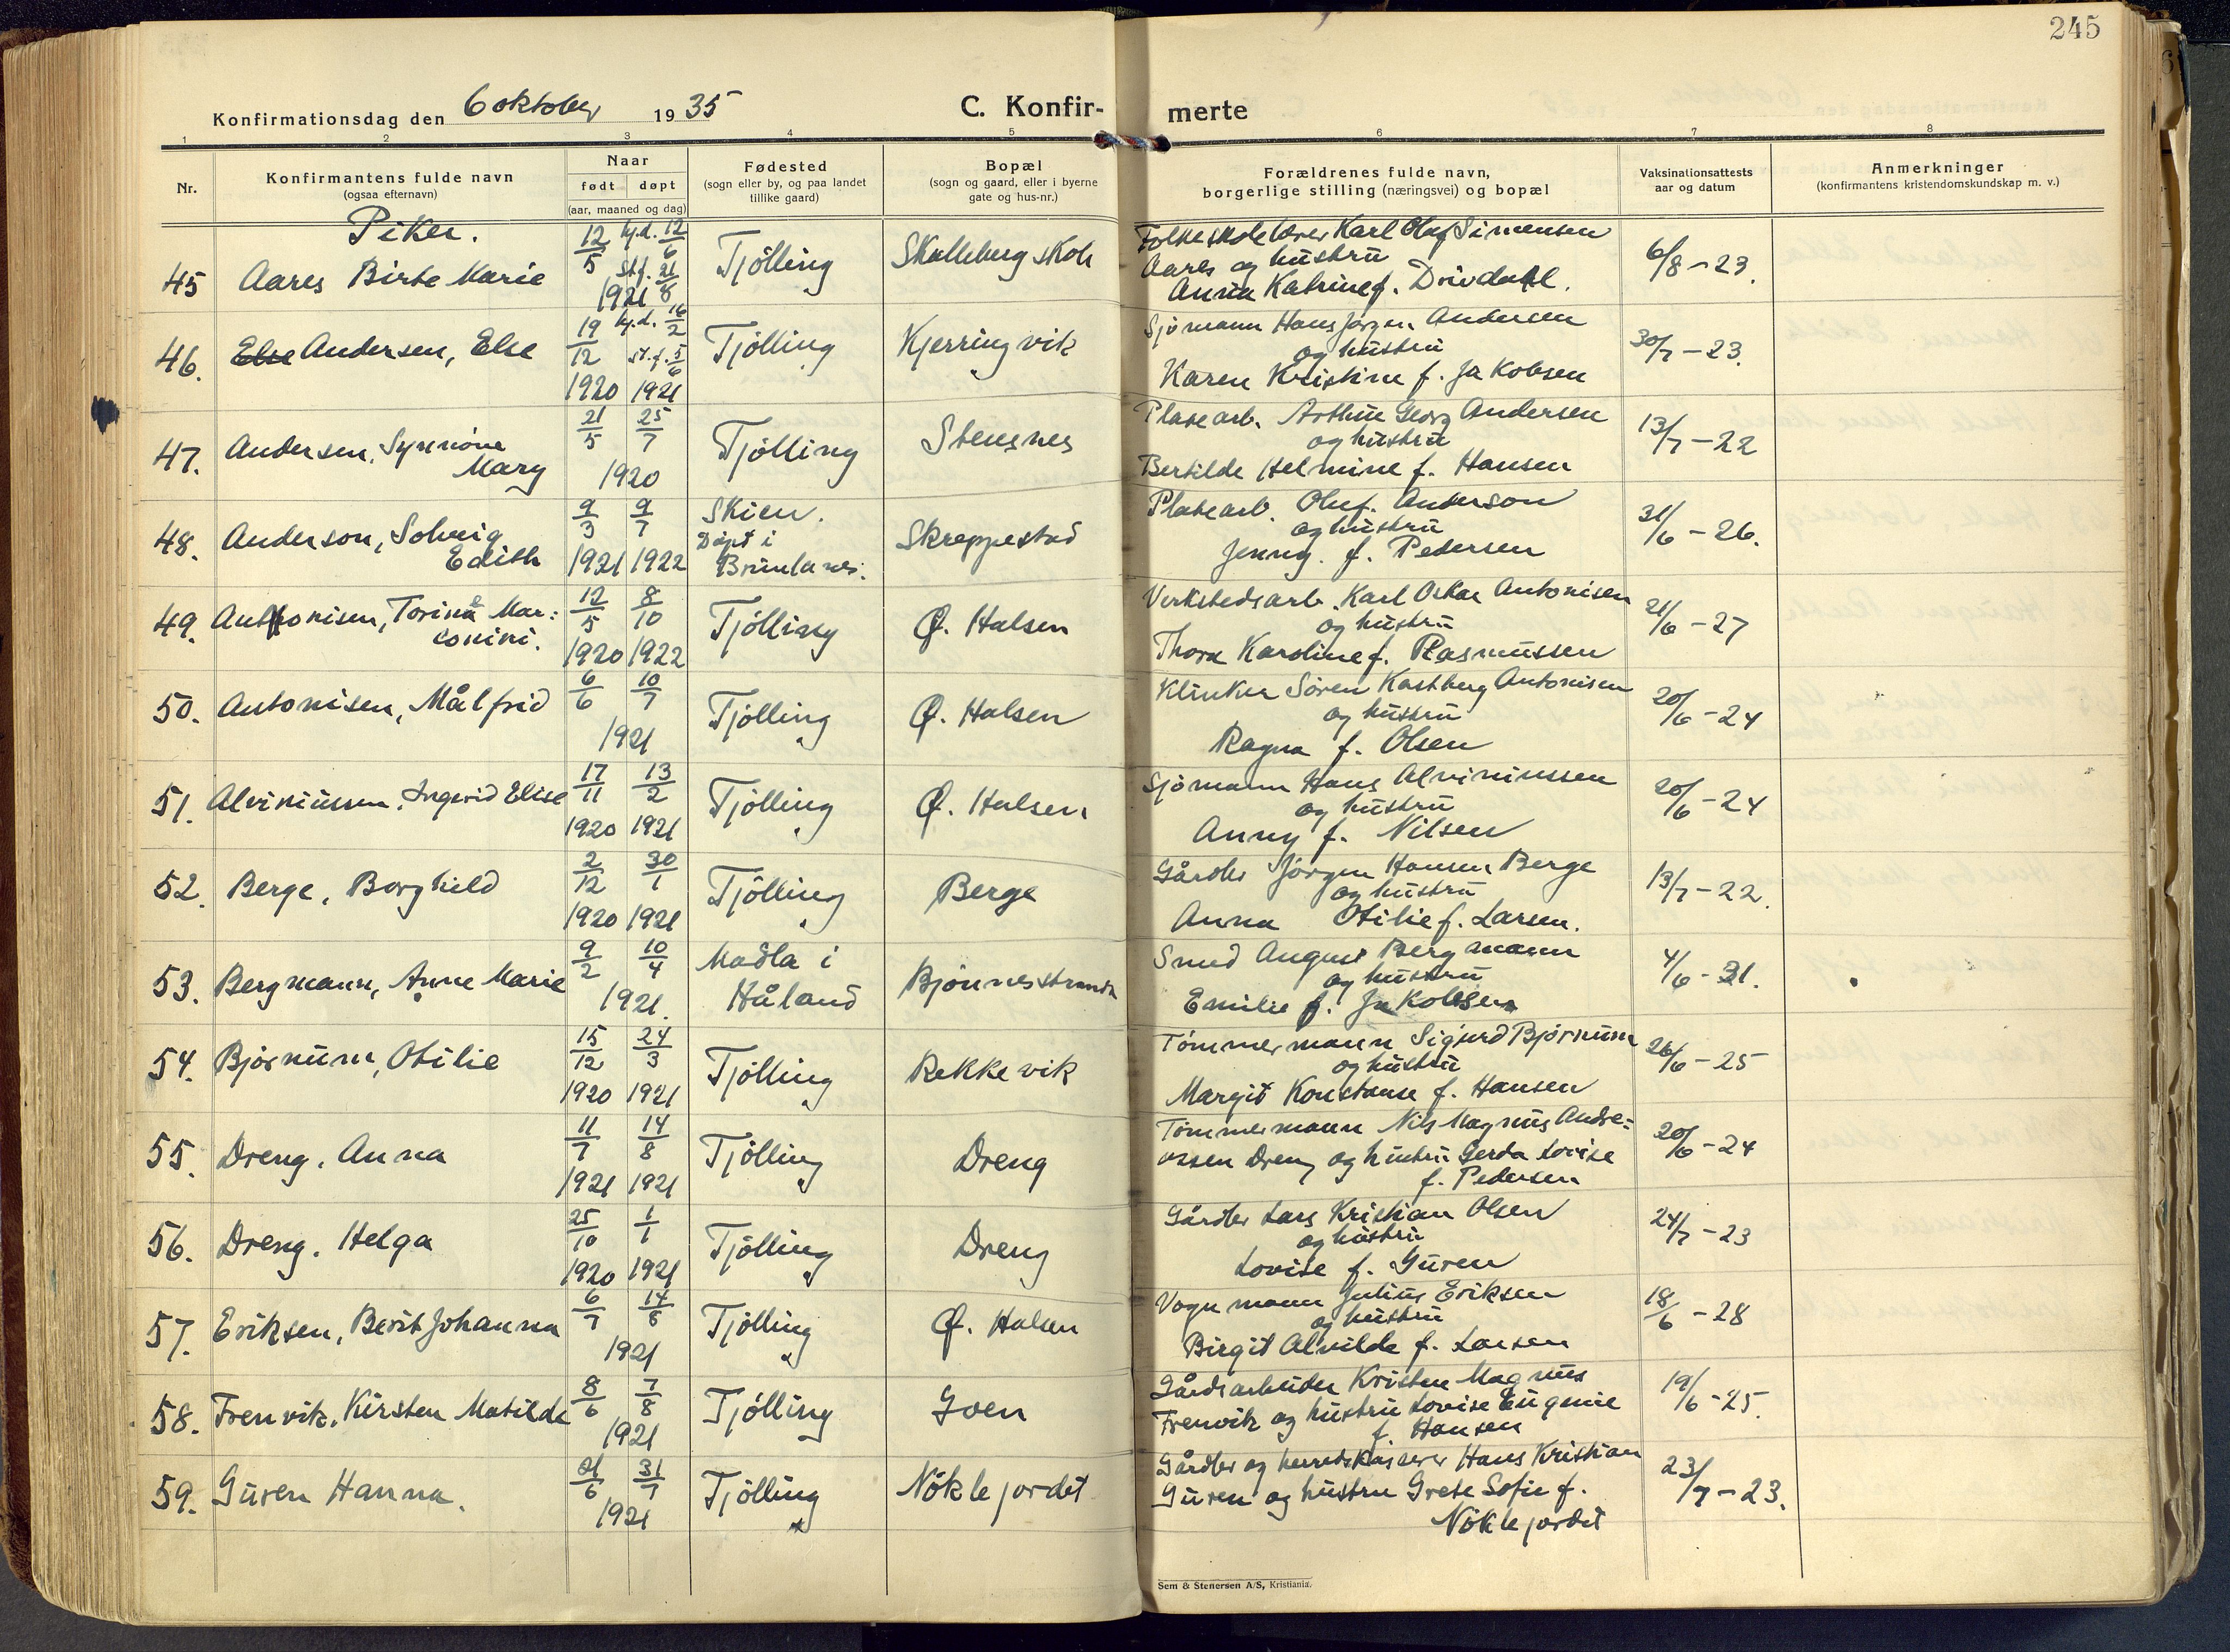 245
Konfirmationsdag den 6 oktober 1935
C. Konfir- merte
1 2 3 4 5 6 7 8
Nr.
Konfirmantens fulde navn
(ogsaa efternavn)
Naar
født døpt
(aar, maaned og dag)
Fødested
(sogn eller by, og paa landet
tillike gaard)
Bopæl
(sogn og gaard, eller i byerne
gate og hus-nr.)
Forældrenes fulde navn,
borgerlige stilling (næringsvei) og bopæl
Vaksinationsattests
aar og datum
Anmerkninger
(konfirmantens kristendomskundskap m. v.)
Piker.
45 Aares Birte Marie 12/5 hj.d. 12/6 st.f. 21/8 1921 Tjølling Skalleberg skole
Folkeskolelærer Karl Olaf Simensen
Aares og hustru
Anna Katrine f. Drivdahl. 6/8-23.
46. Else Andersen, Else 19/12 1920 hj.d. 16/2 st.f. 5/6 1921 Tjølling Kjerringvik
Sjømann Hans Jørgen Andersen
og hustru
Karen Kristine f. Jakobsen 30/7-23.
47. Andersen, Synnöve
Mary 21/5 25/7 1920 Tjølling Stensnes
Platearb. Arthur Georg Andersen
og hustru
Bertilde Helmine f. Hansen 13/7-22
48. Anderson, Solveig
Edith 9/3 1921 9/7 1922 Skien.
Døpt i
Brunlanes.
Skreppestad
Platearb. Oluf Anderson
og hustru
Jenny f. Pedersen 31/6-26.
49. Antonisen, Torine Mar:
conini. 12/5 1920 8/10 1922 Tjølling Ø. Halsen
Verkstedsarb. Karl Oskar Antonisen
og hustru
Thora Karoline f. Rasmussen 21/6-27
50. Antonisen, Målfrid 6/6 10/7 1921 Tjølling Ø. Halsen
Klinker Søren Kastberg Antonisen
og hustru
Ragna f. Olsen 20/6-24
51. Alviniussen, Ingerid Elise 17/11 1920 13/2 1921 Tjølling Ø. Halsen
Sjømann Hans Alviniussen
og hustru
Anny f. Nilsen 20/6-24
52. Berge, Borghild 2/12 1920 30/1 1921 Tjølling Berge
Gårdbr Jørgen Hansen Berge
og hustru
Anna Otilie f. Larsen. 13/7-22.
53. Bergmann, Anne Marie 9/2 10/4 1921. Madla i
Håland
Bjønnesstranda
Smed August Bergmann
og hustru
Emilie f. Jakobsen 4/6-31.
54. Bjørnum, Otilie 15/12 1920 24/3 1921 Tjølling Rekkevik
Tømmermann Sigurd Bjørnum
og hustru
Margit Konstanse f. Hansen 26/6-25
55. Dreng, Anna 11/7 1921 14/8 1921 Tjølling Dreng
Tømmermann Nils Magnus Andre=
assen Dreng og hustru Gerda Lovise
f. Pedersen 20/6-24
56. Dreng, Helga 25/10 1920 1/1 1921 Tjølling Dreng
Gårdbr Lars Kristian Olsen
og hustru
Lovise f. Guren 24/7-23
57. Eriksen, Berit Johanna 6/7 14/8 1921 Tjølling Ø. Halsen
Vognmann Julius Eriksen
og hustru
Birgit Alvilde f. Larsen 18/6-28
58. Frenvik, Kirsten Matilde 8/6 7/8 1921 Tjølling Goen
Gårdsarbeider Kristen Magnus
Frenvik og hustru Lovise Eugenie
f. Hansen 19/6-25.
59. Guren Hanna. 21/6 31/7 1921 Tjølling Nøklejordet
Gårdbr og herredskasserer Hans Kristian
Guren og hustru Grete Sofie f.
Nøklejordet 23/7-23.
Sem & Stenersen A/S, Kristiania.